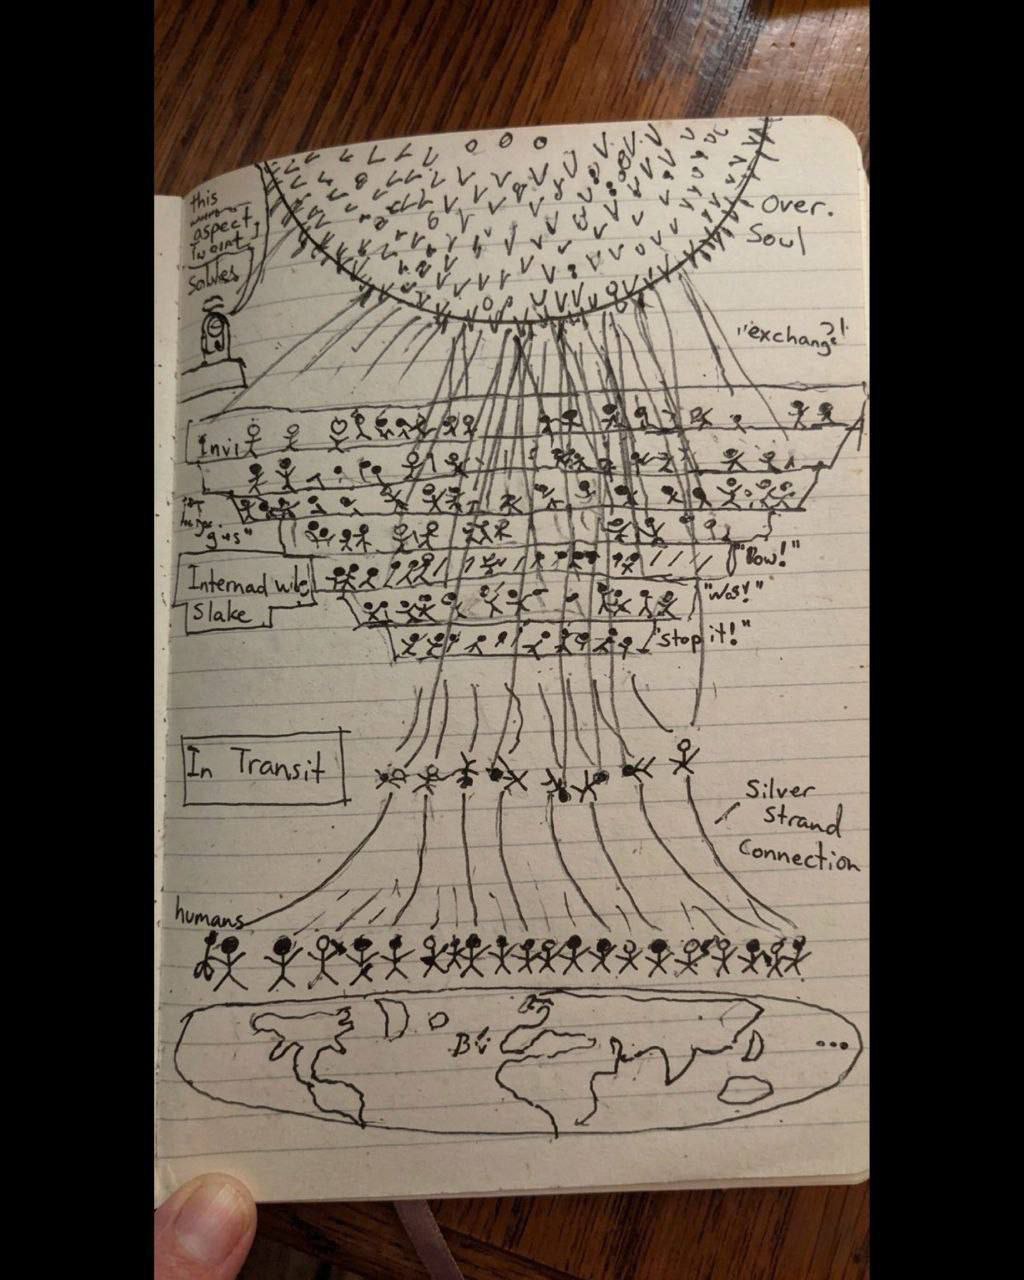 this
aspect
Over.
Soul
Solves
"exchang?!
Invi
"Bow!"
Internad
Slake
"Was!"
"stop it!"
In Transit
Silver
Strand
Connection
humans
...